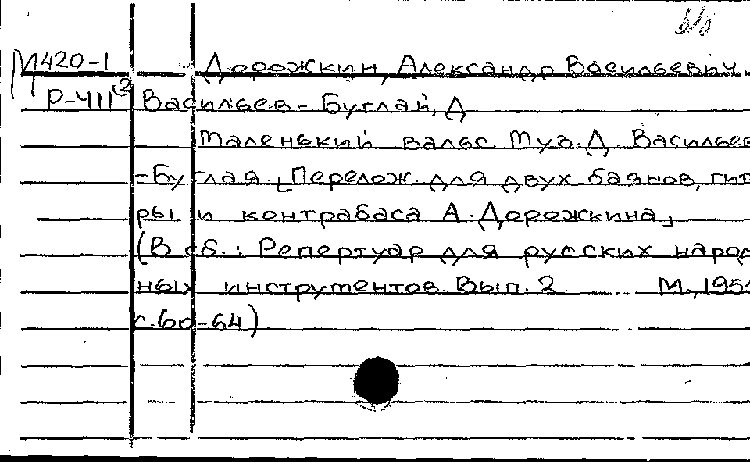 б/з
М420-1 Дорожкин, Александр Васильевич.
Р-411(3 Васильев-Буглай, Д
Маленький вальс Муз. Д. Васильев
-Буглая. [Перелож. для двух баянов, гит
ры и контрабаса А. Дорожкина]
(В сб.: Репертуар для русских народ
ных инструментов. Вып. 2 М., 195
с. 60-64)